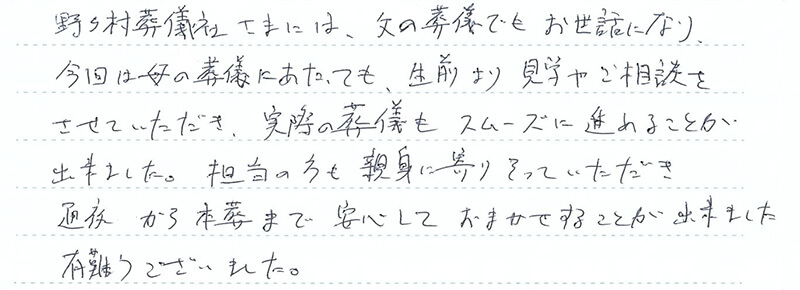 野々村葬儀社さまには、父の葬儀でもお世話になり、
今回は母の葬儀にあたっても、生前より見学やご相談を
させていただき、実際の葬儀もスムーズに進めることが
出来ました。担当の方も親身に寄りそっていただき
通夜から本葬まで安心しておまかせすることが出来ました
有難うございました。